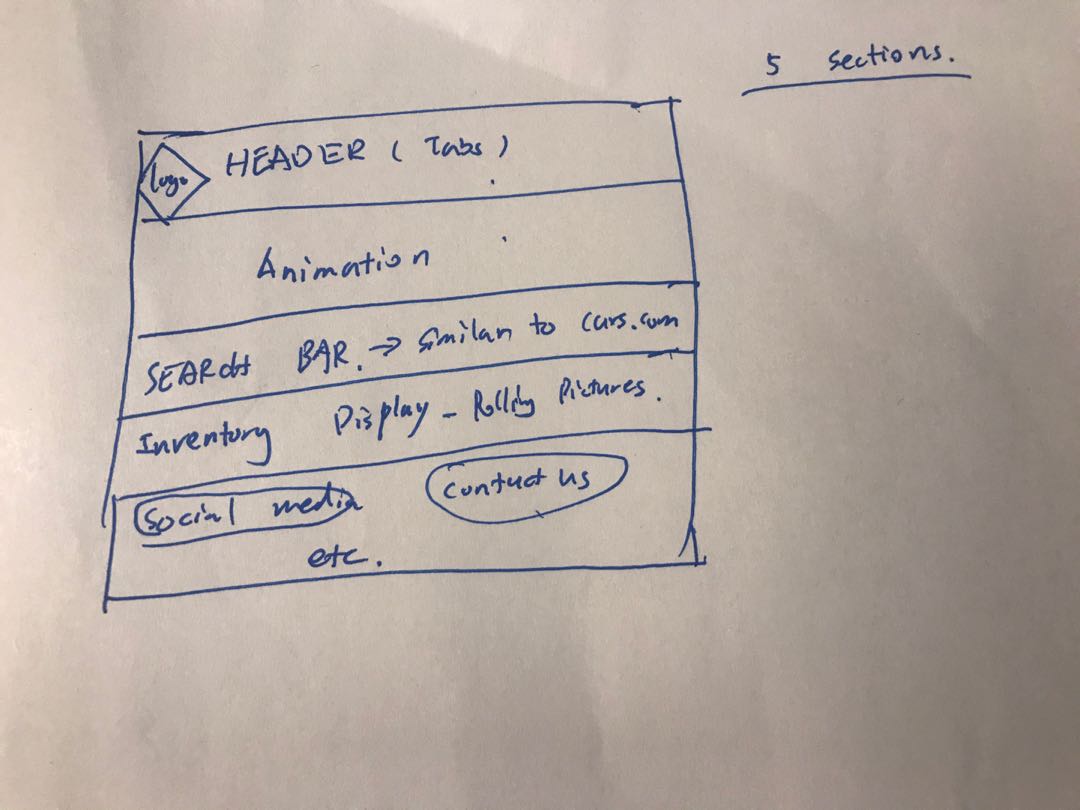 5 sections.
logo HEADER ( Tabs )
Animation
SEARCH BAR. → similar to cars.com
Inventory Display - Rolling Pictures.
Social media contact us
etc.